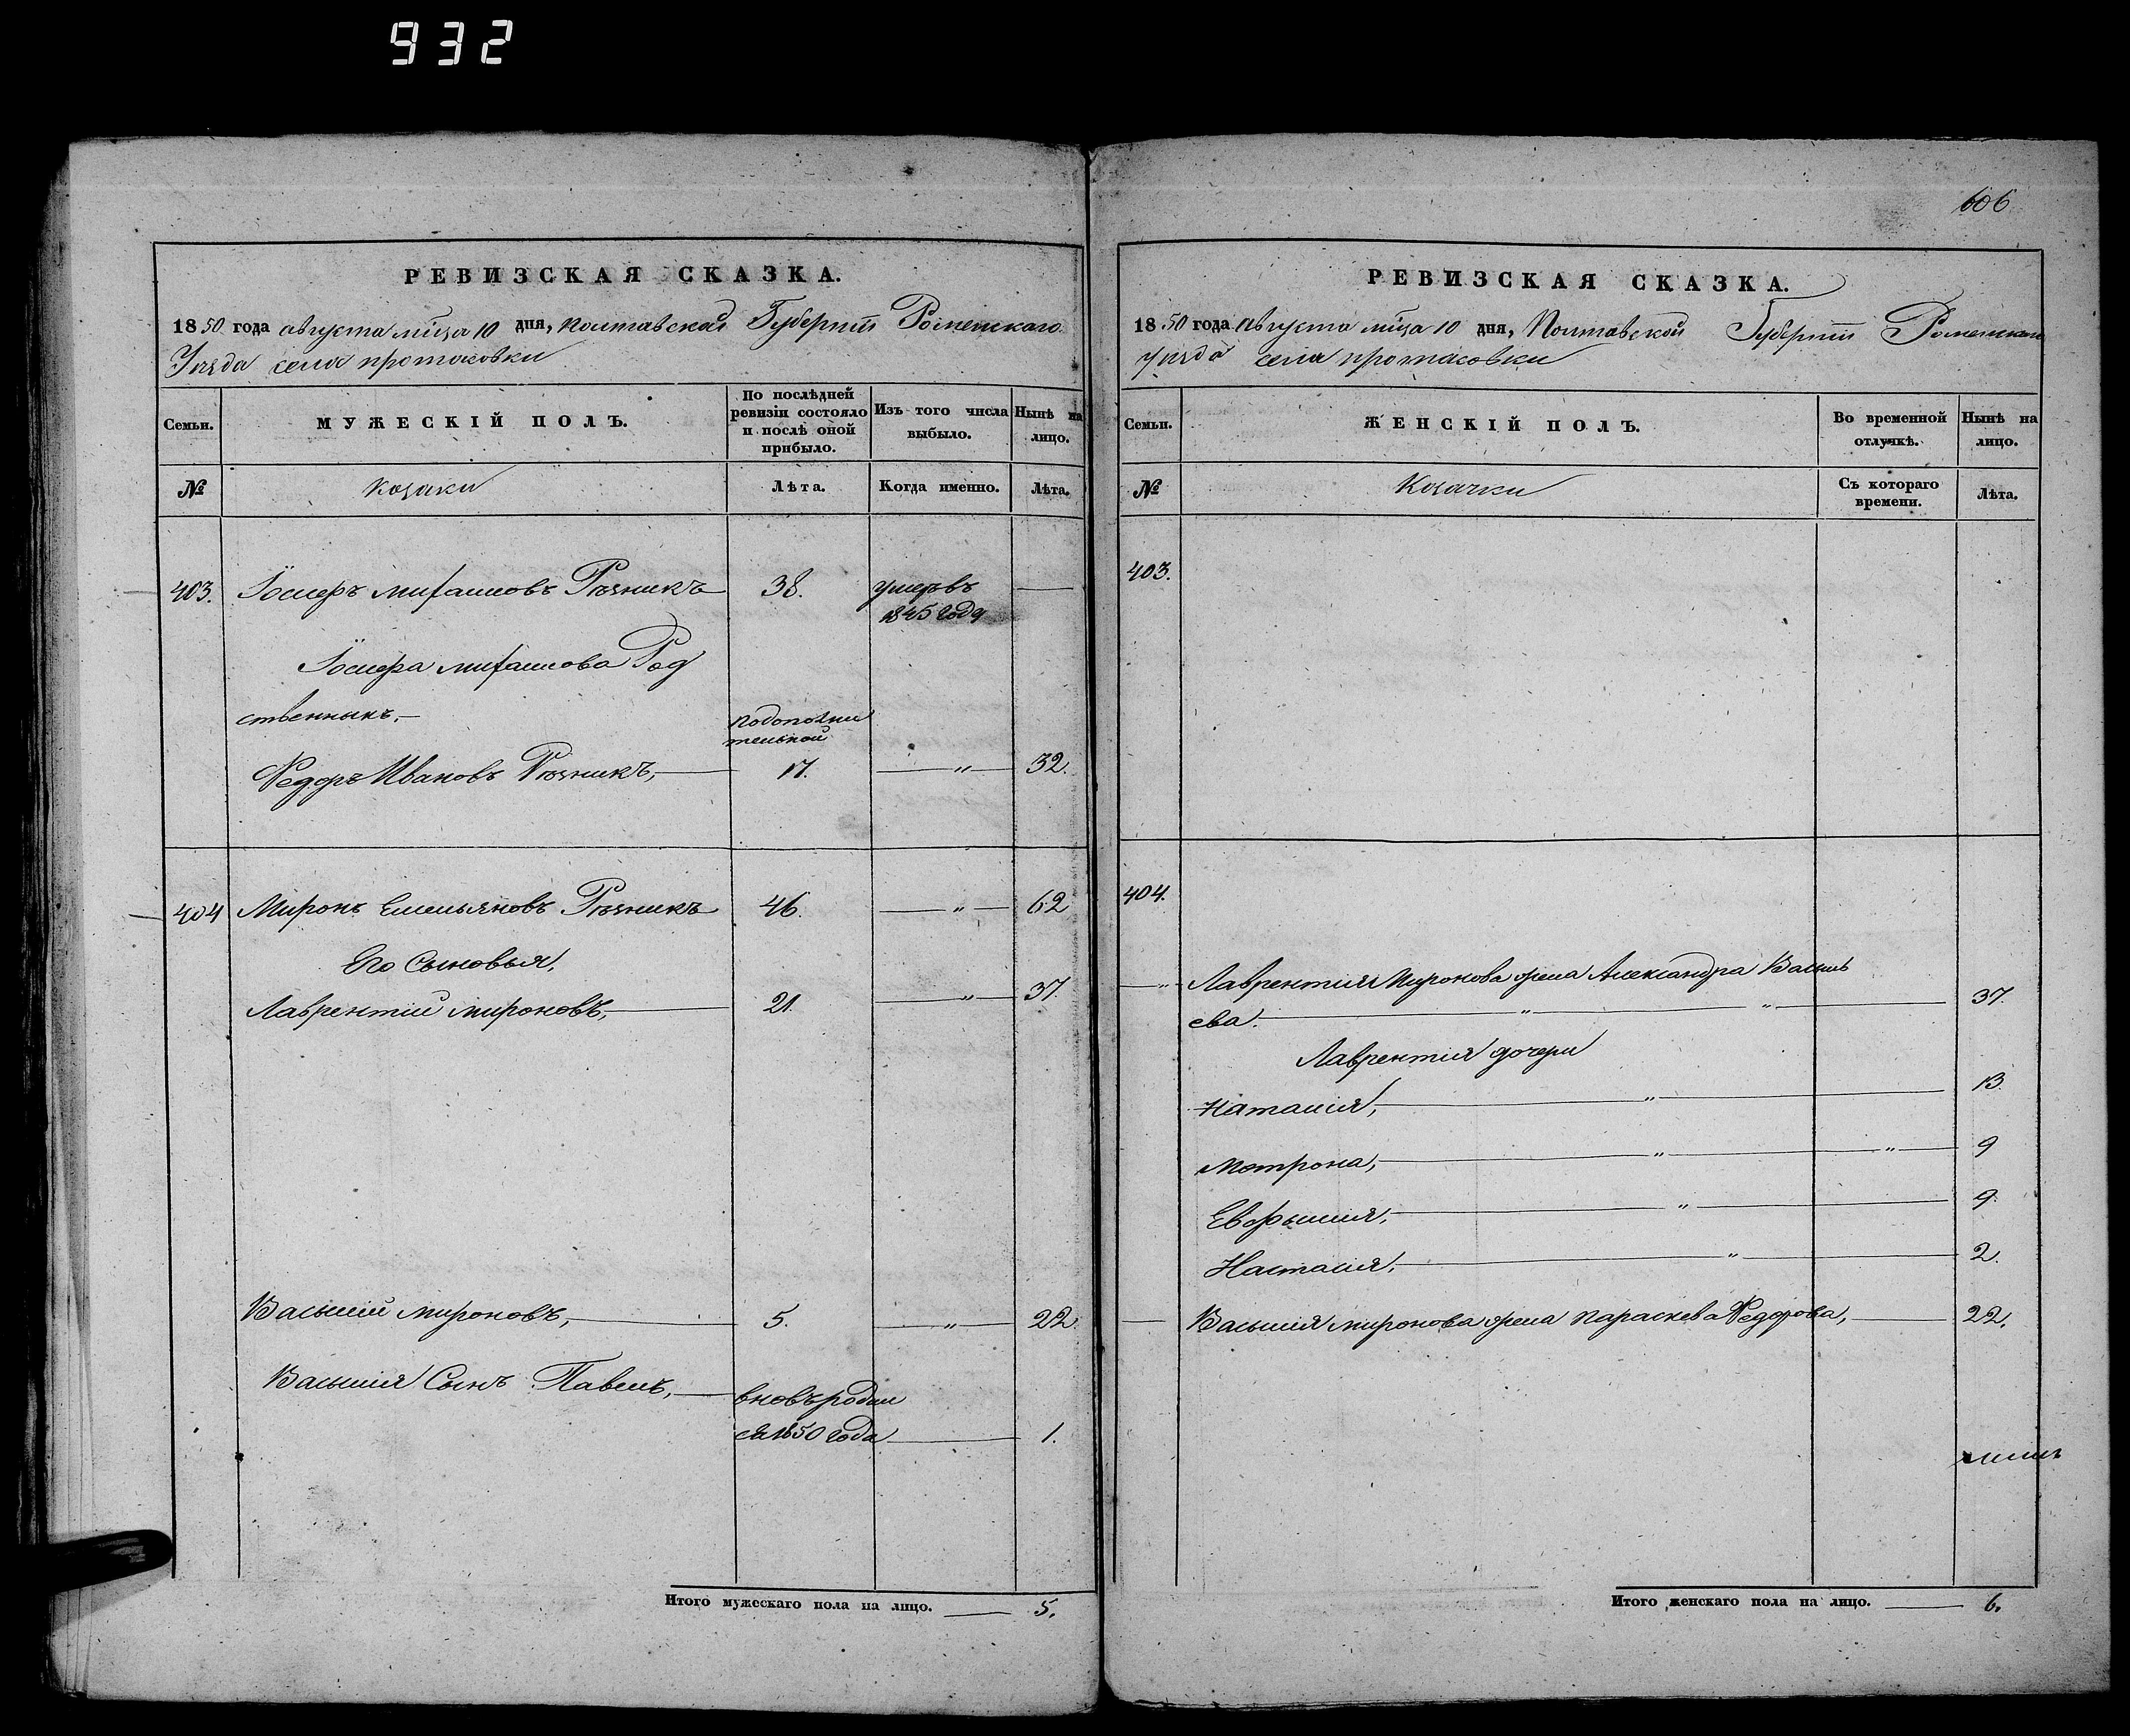 932
606
РЕВИЗСКАЯ СКАЗКА.
1850 года августа мца 10 дня, Полтавской Губерніи Роменскаго
Уезда села протасовки
Семьи.
МУЖЕСКІЙ ПОЛЪ.
По послѣдней ревизіи состояло и послѣ оной прибыло.
Изъ того числа выбыло.
Нынѣ на лицо.
№
Козаки
Лѣта.
Когда именно.
Лѣта.
403. Іосифъ михайловъ Резникъ 38. умеръ въ 1845 году
Іосифа михайлова Род
ственникъ.
подополни
тельной
Федоръ Ивановъ Резникъ, 17. „ 32.
404 Миронъ Емельяновъ Резникъ 46. „ 62
Его Сыновья,
Лаврентій мироновъ, 21. „ 37.
Василій мироновъ, 5. „ 22.
Василія Сынъ Павелъ, вновь родил
ся 1850 года 1.
Итого мужескаго пола на лицо. 5.
РЕВИЗСКАЯ СКАЗКА.
1850 года августа мца 10 дня, Полтавской Губерніи Роменскаго
уезда села протасовки
Семьи.
ЖЕНСКІЙ ПОЛЪ.
Во временной отлучкѣ.
Нынѣ на лицо.
№
Козачки
Съ котораго времени.
Лѣта.
403.
404.
„ Лаврентия Миронова жена Александра Василь
ева. „ „ 37.
Лаврентия дочери
Наталія, „ 13.
Мотрона, „ „ 9
Евфимия, „ 9.
Настасія, „ 2.
Василія миронова жена параскева Федорова, 22.
Итого женскаго пола на лицо. 6.